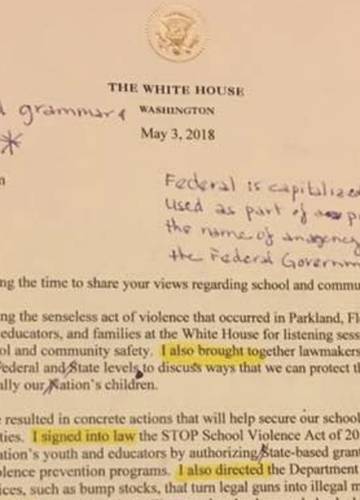 THE WHITE HOUSE
grammar &
WASHINGTON
*
May 3, 2018
Federal is capitalized
used as part of
the name of an agency
the Federal Governm
ing the time to share your views regarding school and commu
ing the senseless act of violence that occurred in Parkland, Fl
educators, and families at the White House for listening sess
ol and community safety. I also brought together lawmakers
Federal and State levels to discuss ways that we can protect th
ally our Nation's children.
resulted in concrete actions that will help secure our school
ties. I signed into law the STOP School Violence Act of 20
ation's youth and educators by authorizing State-based grant
olence prevention programs. I also directed the Department
ices, such as bump stocks, that turn legal guns into illegal m